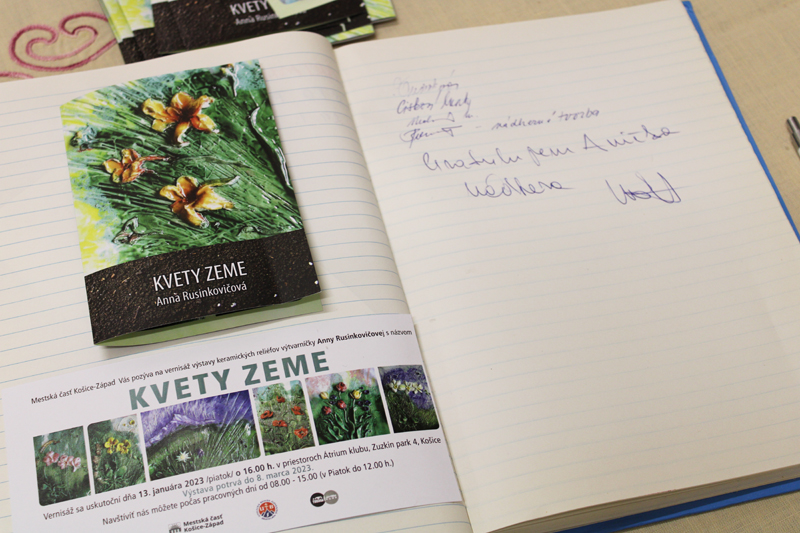 KVETY
Anna Rusinkovičová
KVETY ZEME
Anna Rusinkovičová
Mestská časť Košice-Západ Vás pozýva na vernisáž výstavy keramických reliéfov výtvarníčky Anny Rusinkovičovej s názvom
KVETY ZEME
Vernisáž sa uskutoční dňa 13. januára 2023 /piatok/ o 16.00 h. v priestoroch Átrium klubu, Zuzkin park 4, Košice
Výstava potrvá do 8. marca 2023.
Navštíviť nás môžete počas pracovných dní od 08.00 - 15.00 (v Piatok do 12.00 h.)
Mestská časť
Košice-Západ
- nádherná tvorba
Gratulujem Anička
nádhera